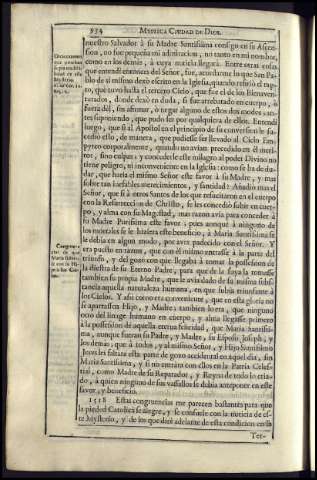 934 Mystica Ciudad de Dios.
nuestro Salvador à su Madre Santissima consigo en su Ascen-
sion, no fue pequeña mi admiracion, no tanto en mi nombre,
como en los demás, à cuya noticia llegarà. Entre otras cosas
que entendì entonces del Señor, fue, acordarme lo que San Pa-
blo de si mismo dexò escrito en la Iglesia, quando refiriò el rap-
to, que tuvo hasta el tercero Cielo, que fue el de los Bienaven-
turados, donde dexò en duda, si fue arrebatado en cuerpo, ò
fuera dèl, sin afirmar, ò negar alguno de estos dos modos, an-
tes suponiendo, que pudo ser por qualquiera de ellos. Entendì
luego, que si al Apostol en el principio de su conversion le su-
cediò esto, de manera, que pudiesse ser llevado al Cielo Em-
pyreo corporalmente, quando no avian precedido en èl meri-
tos, sino culpas; y concederle este milagro al poder Divino no
tiene peligro, ni inconveniente en la Iglesia: como se ha de du-
dar, que haria el mismo Señor este favor à su Madre, y mas
sobre tan inefables merecimientos, y santidad? Añadiò mas el
Señor, que si à otros Santos de los que resucitaron en el cuerpo
con la Resurreccion de Christo, se les concediò subir en cuer-
po, y alma con su Magestad, mas razon avia para conceder à
su Madre Purissima este favor; pues aunque à ninguno de
los mortales se le hiziera este beneficio, à Maria Santissima se
le debia en algun modo, por aver padecido con el Señor. Y
era puesto en razon, que con èl mismo entrasse à la parte del
triunfo, y del gozo con que llegaba à tomar la possession de
la diestra de su Eterno Padre, para que de la suya la tomasse
tambien su propia Madre, que le avia dado de su misma substa-
ncia aquella naturaleza humana, en que subia triunfante à
los Cielos. Y assi como era conveniente, que en esta gloria no
se apartassen Hijo, y Madre; tambien lo era, que ninguno
otro del linage humano en cuerpo, y alma llegasse primero
à la possession de aquella eterna felicidad, que Maria Santissi-
ma, aunque fueran su Padre, y Madre, su Esposo Joseph, y
los demás; que à todos, y al mismo Señor, y Hijo Santissimo
Jesvs les faltara esta parte de gozo accidental en aquel dia, sin
Maria Santissima, y si no entrára con ellos en la Patria Celes-
tial, como Madre de su Reparador, y Reyna de todo lo cria-
do, à quien ninguno de sus vassallos se debia anteponer en este
favor, y beneficio.
1518 Estas congruencias me parecen bastantes para que
la piedad Catolica se alegre, y se consuele con la noticia de es-
te Mysterio, y de los que dirè adelante de esta condicion en la
Ter-